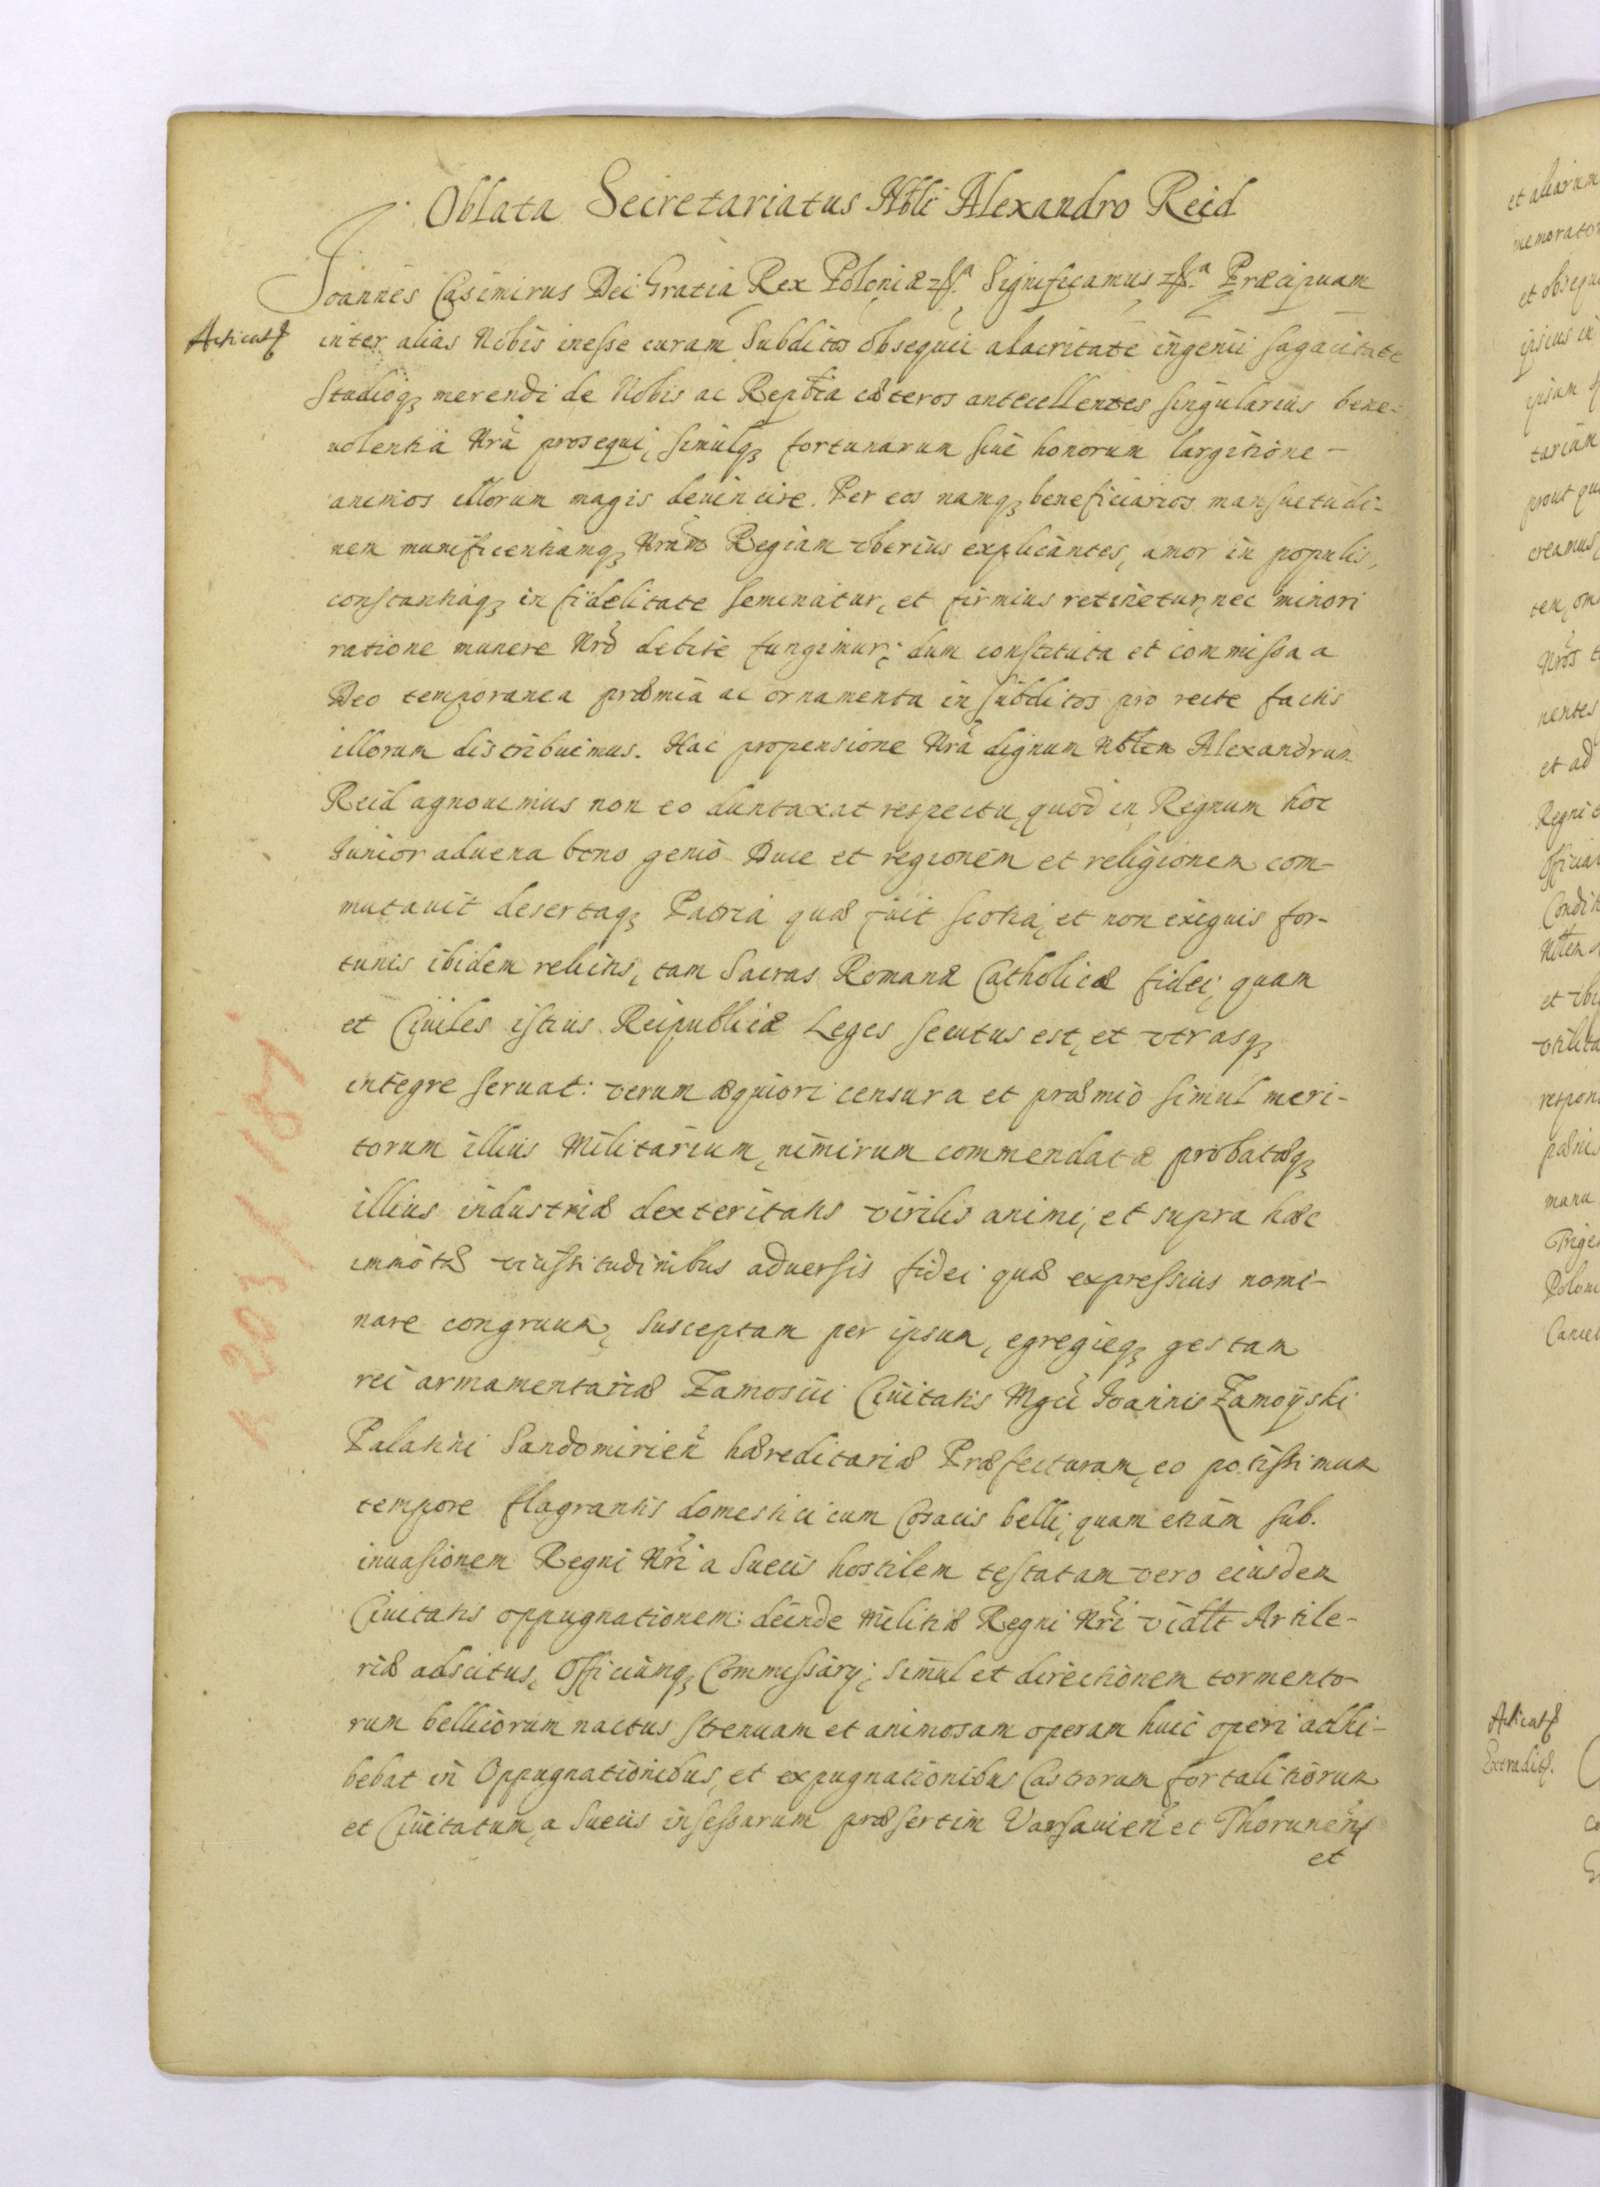 Oblata Secretariatus Nbli Alexandro Reid
Joannes Casimirus Dei Gratia Rex Poloniæ Significamus Præcipuam
inter alias Nobis inesse curam Subditos obsequii alacritate ingenii sagacitate
studioq3 merendi de Nobis ac Repbca cæteros antecellentes singularius bene-
volentia Nra prosequi, simulq3 fortunarum sive honorum largitione –
animos illorum magis devincire. Per eos namq3 beneficiarios mansuetudi-
nem munificentiamq3 Nram Regiam vberius explicantes, amor in populis,
constantiaq3 in fidelitate seminatur, et firmius retinetur, nec minori
ratione munere Nro debite fungimur; dum constituta et commissa a
Deo temporanea præmia ac ornamenta in subditos pro recte factis
illorum distribuimus. Hac propensione Nra dignum Nblem Alexandrum
Reid agnovimus non eo duntaxat respectu, quod in Regnum hoc
Iunior advena bono genio Duce et regionem et religionem com-
mutavit desertaq3 Patria quæ fuit Scotia, et non exiguis for-
tunis ibidem relictis, tam Sacras Romanæ Catholicæ fidei, quam
et Civiles istius Reipublicæ Leges secutus est, et vtrasq3
integre servat: verum æquiori censura et præmio simul meri-
torum illius Militarium, nimirum commendatæ probatæq3
illius industriæ dexteritatis virilis animi, et supra hæc
immotæ vicissitudinibus adversis fidei quæ expressius nomi-
nare congruum, susceptam per ipsum, egregieq3 gestam
rei armamentariæ Zamoscii Civitatis Mgci Joannis Zamoÿski
Palatini Sandomirien hæreditariæ Præfecturam, eo potissimum
tempore flagrantis domestici cum Cosacis belli, quam etiam sub.
invasionem Regni Nri a Suecis hostilem testatam vero eiusdem
Civitatis oppugnationem: deinde Militiæ Regni Nri vidlt Artile-
riæ adscitus, Officiumq3 Commissarij; simul et directionem tormento-
rum bellicorum nactus strenuam et animosam operam huic operi adhi-
bebat in Oppugnationibus, et expugnationibus Castrorum fortalitiorum
et Civitatum, a Suecis insessarum præsertim Varsavien et Thorunens
et